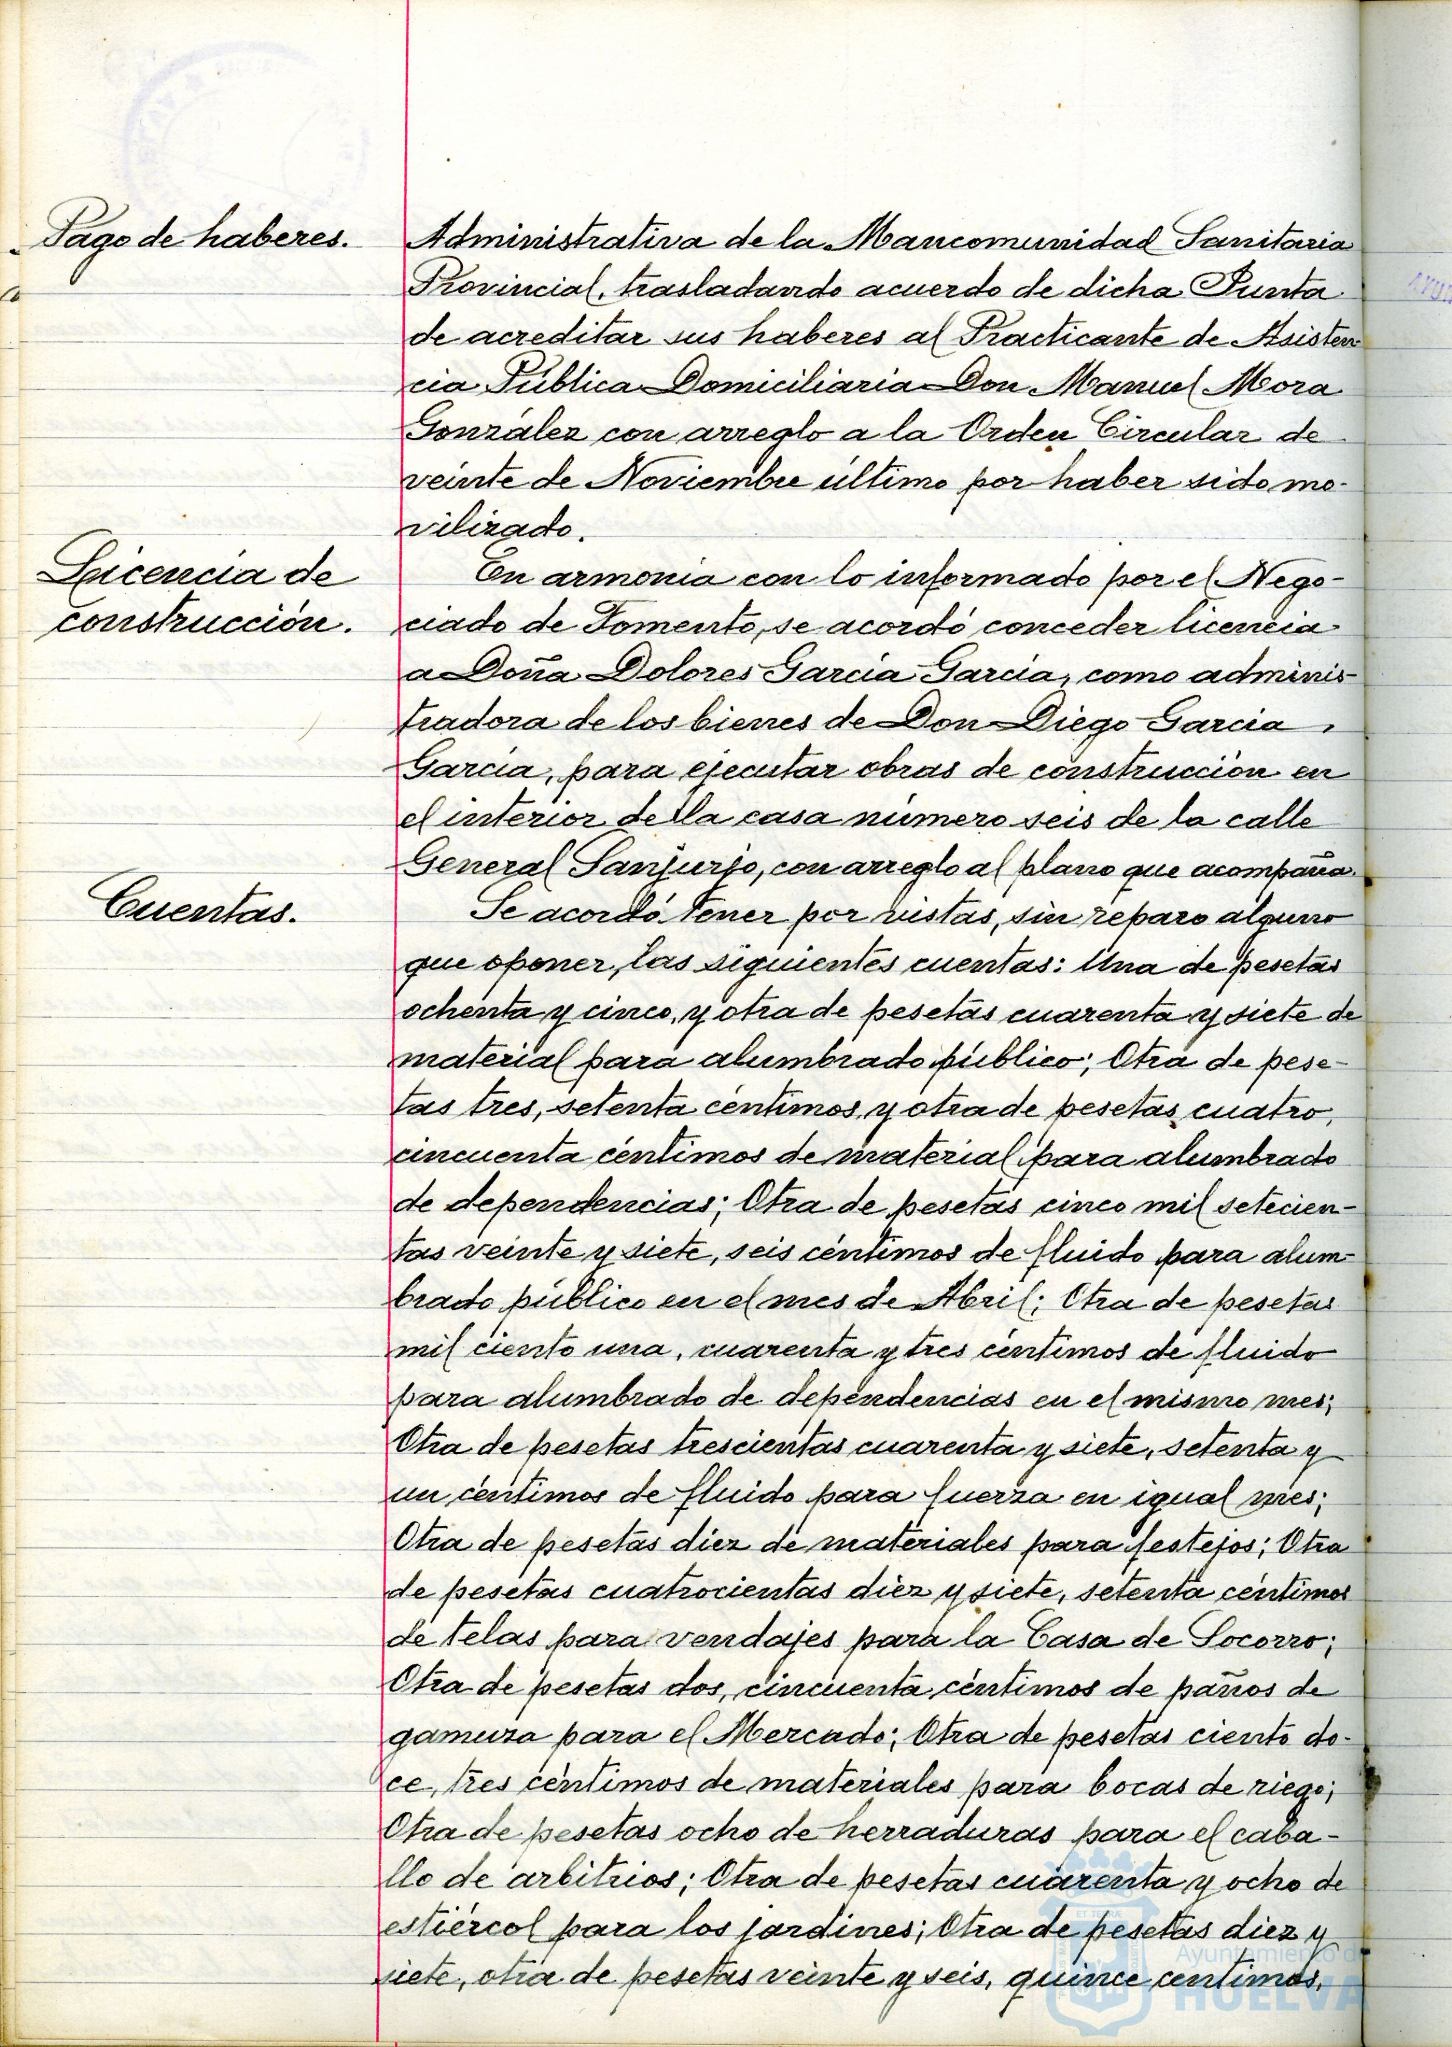 Pago de haberes.
Administrativa de la Mancomunidad Sanitaria
Provincial, trasladando acuerdo de dicha Junta
de acreditar sus haberes al Practicante de Asisten
cia Pública Domiciliaria Don Manuel Mora
González con arreglo a la Orden Circular de
veinte de Noviembre último por haber sido mo-
vilizado.
Licencia de
construcción.
En armonia con lo informado por el Nego-
ciado de Fomento, se acordó conceder licencia
a Doña Dolores García García, como adminis-
tradora de los bienes de Don Diego Garcia
García, para ejecutar obras de construcción en
el interior de la casa número seis de la calle
General Sanjurjo, con arreglo al plano que acompaña.
Cuentas.
Se acordó tener por vistas, sin reparo alguno
que oponer, las siguientes cuentas: Una de pesetas
ochenta y cinco, y otra de pesetas cuarenta y siete de
material para alumbrado público; Otra de pese-
tas tres, setenta céntimos y otra de pesetas cuatro,
cincuenta céntimos de material para alumbrado
de dependencias; Otra de pesetas cinco mil setecien-
tas veinte y siete, seis céntimos de fluido para alum-
brado público en el mes de Abril; Otra de pesetas
mil ciento una, cuarenta y tres céntimos de fluido
para alumbrado de dependencias en el mismo mes;
Otra de pesetas trescientas cuarenta y siete, setenta y
un céntimos de fluido para fuerza en igual mes;
Otra de pesetas diez de materiales para festejos; Otra
de pesetas cuatrocientas diez y siete, setenta céntimos
de telas para vendajes para la Casa de Socorro;
Otra de pesetas dos, cincuenta céntimos de paños de
gamuza para el Mercado; Otra de pesetas ciento do-
ce, tres céntimos de materiales para bocas de riego;
Otra de pesetas ocho de herraduras para el caba-
llo de arbitrios; Otra de pesetas cuarenta y ocho de
estiércol para los jardines; Otra de pesetas diez y
siete, otra de pesetas veinte y seis, quince centimos,
Ayuntamiento de
HUELVA